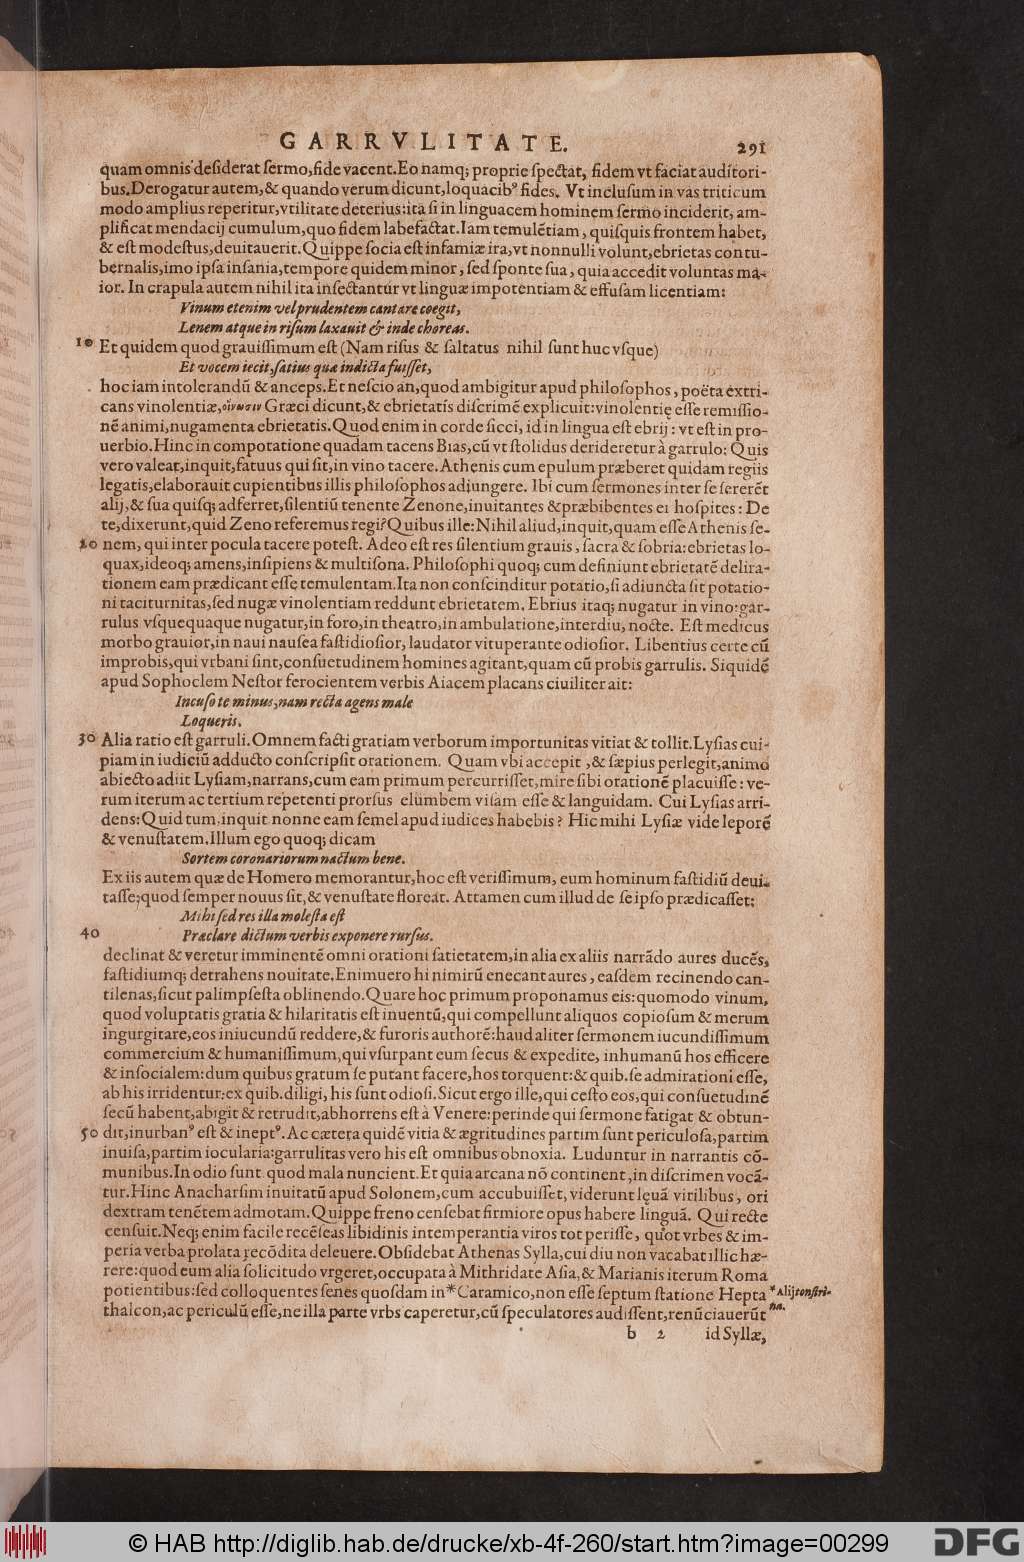 GARRVLITATE. 291
quam omnis desiderat sermo, fide vacent. Eo namq; proprie spectat, fidem vt faciat auditori-
bus. Derogatur autem, & quando verum dicunt, loquacibꝰ fides. Vt inclusum in vas triticum
modo amplius reperitur, vtilitate deterius: ita si in linguacem hominem sermo inciderit, am-
plificat mendacij cumulum, quo fidem labefactat. Iam temulētiam, quisquis frontem habet,
& est modestus, deuitauerit. Quippe socia est infamiæ ira, vt nonnulli volunt, ebrietas contu-
bernalis, imo ipsa insania, tempore quidem minor, sed sponte sua, quia accedit voluntas ma-
ior. In crapula autem nihil ita insectantur vt linguæ impotentiam & effusam licentiam:
Vinum etenim vel prudentem cantare coegit,
Lenem atque in risum laxauit & inde choreas.
10 Et quidem quod grauissimum est (Nam risus & saltatus nihil sunt huc vsque)
Et vocem iecit, satius quæ indicta fuisset,
hoc iam intolerandū & anceps. Et nescio an, quod ambigitur apud philosophos, poëta extri-
cans vinolentiæ, οἴνωσιν Græci dicunt, & ebrietatis discrimē explicuit: vinolentię esse remissio-
nē animi, nugamenta ebrietatis. Quod enim in corde sicci, id in lingua est ebrij: vt est in pro-
uerbio. Hinc in compotatione quadam tacens Bias, cū vt stolidus derideretur à garrulo: Quis
vero valeat, inquit, fatuus qui sit, in vino tacere. Athenis cum epulum præberet quidam regiis
legatis, elaborauit cupientibus illis philosophos adiungere. Ibi cum sermones inter se sererēt
alij, & sua quisq; adferret, silentiū tenente Zenone, inuitantes & præbibentes ei hospites: De
te, dixerunt, quid Zeno referemus regi? Quibus ille: Nihil aliud, inquit, quam esse Athenis se-
20 nem, qui inter pocula tacere potest. Adeo est res silentium grauis, sacra & sobria: ebrietas lo-
quax, ideoq; amens, insipiens & multisona. Philosophi quoq; cum definiunt ebrietatē delira-
tionem eam prædicant esse temulentam. Ita non conscinditur potatio, si adiuncta sit potatio-
ni taciturnitas, sed nugæ vinolentiam reddunt ebrietatem. Ebrius itaq; nugatur in vino: gar-
rulus vsquequaque nugatur, in foro, in theatro, in ambulatione, interdiu, nocte. Est medicus
morbo grauior, in naui nausea fastidiosior, laudator vituperante odiosior. Libentius certe cū
improbis, qui vrbani sint, consuetudinem homines agitant, quam cū probis garrulis. Siquidē
apud Sophoclem Nestor ferocientem verbis Aiacem placans ciuiliter ait:
Incuso te minus, nam recta agens male
Loqueris.
30 Alia ratio est garruli. Omnem facti gratiam verborum importunitas vitiat & tollit. Lysias cui-
piam in iudiciū adducto conscripsit orationem. Quam vbi accepit, & sæpius perlegit, animo
abiecto adiit Lysiam, narrans, cum eam primum percurrisset, mire sibi orationē placuisse: ve-
rum iterum ac tertium repetenti prorsus elumbem visam esse & languidam. Cui Lysias arri-
dens: Quid tum, inquit nonne eam semel apud iudices habebis? Hic mihi Lysiæ vide leporē
& venustatem. Illum ego quoq; dicam
Sortem coronariorum nactum bene.
Ex iis autem quæ de Homero memorantur, hoc est verissimum, eum hominum fastidiū deui-
tasse; quod semper nouus sit, & venustate floreat. Attamen cum illud de seipso prædicasset:
Mihi sed res illa molesta est
40 Præclare dictum verbis exponere rursus.
declinat & veretur imminentē omni orationi satietatem, in alia ex aliis narrādo aures ducēs,
fastidiumq; detrahens nouitate. Enimuero hi nimirū enecant aures, easdem recinendo can-
tilenas, sicut palimpsesta oblinendo. Quare hoc primum proponamus eis: quomodo vinum,
quod voluptatis gratia & hilaritatis est inuentū, qui compellunt aliquos copiosum & merum
ingurgitare, eos iniucundū reddere, & furoris authorē: haud aliter sermonem iucundissimum
commercium & humanissimum, qui vsurpant eum secus & expedite, inhumanū hos efficere
& insocialem: dum quibus gratum se putant facere, hos torquent: & quib. se admirationi esse,
ab his irridentur: ex quib. diligi, his sunt odiosi. Sicut ergo ille, qui cesto eos, qui consuetudinē
secū habent, abigit & retrudit, abhorrens est à Venere: perinde qui sermone fatigat & obtun-
50 dit, inurbanꝰ est & ineptꝰ. Ac cætera quidē vitia & ægritudines partim sunt periculosa, partim
inuisa, partim iocularia: garrulitas vero his est omnibus obnoxia. Luduntur in narrantis cō-
munibus. In odio sunt quod mala nuncient. Et quia arcana nō continent, in discrimen vocā-
tur. Hinc Anacharsim inuitatū apud Solonem, cum accubuisset, viderunt lęuā virilibus, ori
dextram tenētem admotam. Quippe freno censebat firmiore opus habere linguā. Qui recte
censuit. Neq; enim facile recēseas libidinis intemperantia viros tot periisse, quot vrbes & im-
peria verba prolata recōdita deleuere. Obsidebat Athenas Sylla, cui diu non vacabat illic hæ-
rere: quod eum alia solicitudo vrgeret, occupata à Mithridate Asia, & Marianis iterum Roma
potientibus: sed colloquentes senes quosdam in *Caramico, non esse septum statione Hepta *Alij tonstri-
thalcon, ac periculū esse, ne illa parte vrbs caperetur, cū speculatores audissent, renūciauerūt na.
b 2 id Syllæ,
© HAB http://diglib.hab.de/drucke/xb-4f-260/start.htm?image=00299 DFG